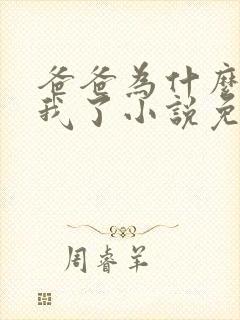 爸爸為什麼
我了小說免
周睿羊